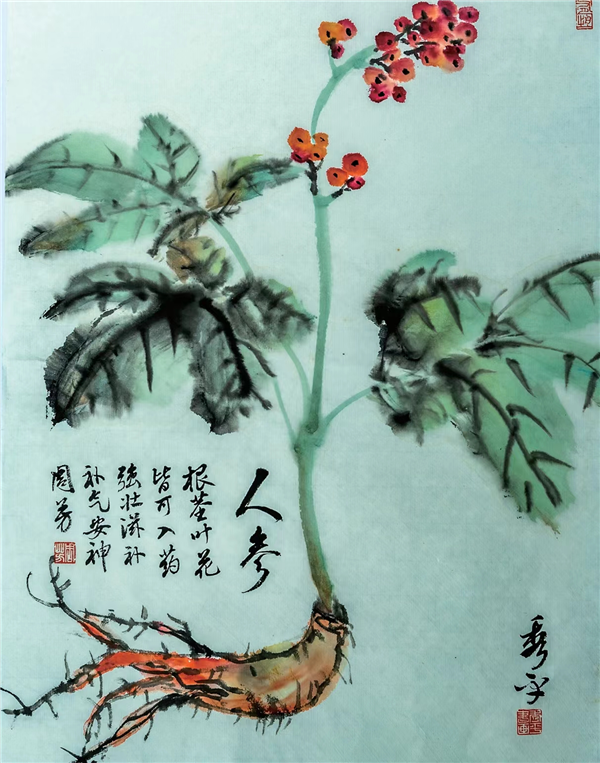 人参
根茎叶花
皆可入药
强壮滋补
补气安神
周芳
秀平